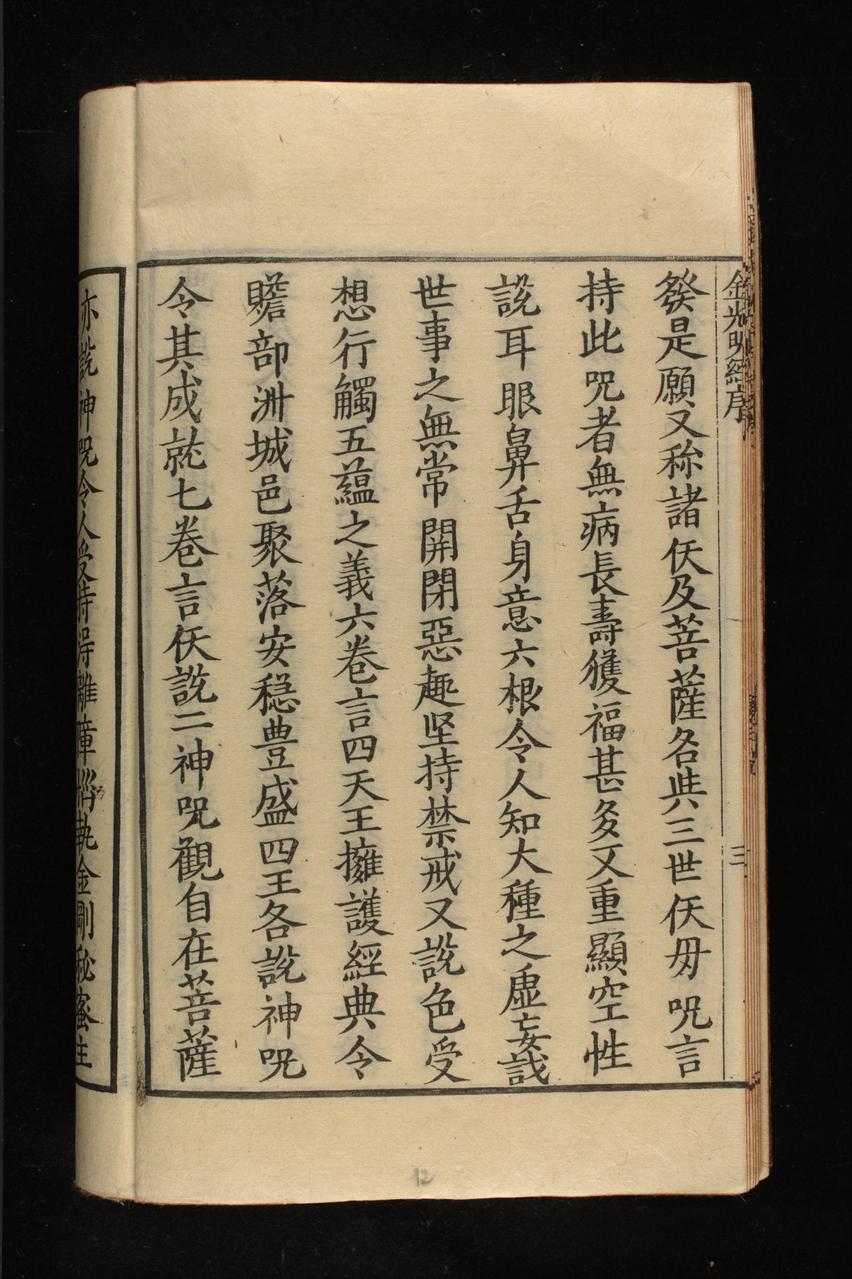 金光明經序
三
發是願又称諸仸及菩薩名共三世仸毋呪言
持此呪者無病長壽獲福甚多又重顯空性
說耳眼鼻舌身意六根令人知大種之虛妄識
世事之無常開閉惡趣坚持禁戒又說色受
想行觸五蘊之義六卷言四天王擁護經典令
贍部洲城邑聚落安穏豊盛四王各說神呪
令其成就七卷言仸說二神呪觀自在菩薩
亦說神呪令人受持得離障惱執金剛秘密主
12